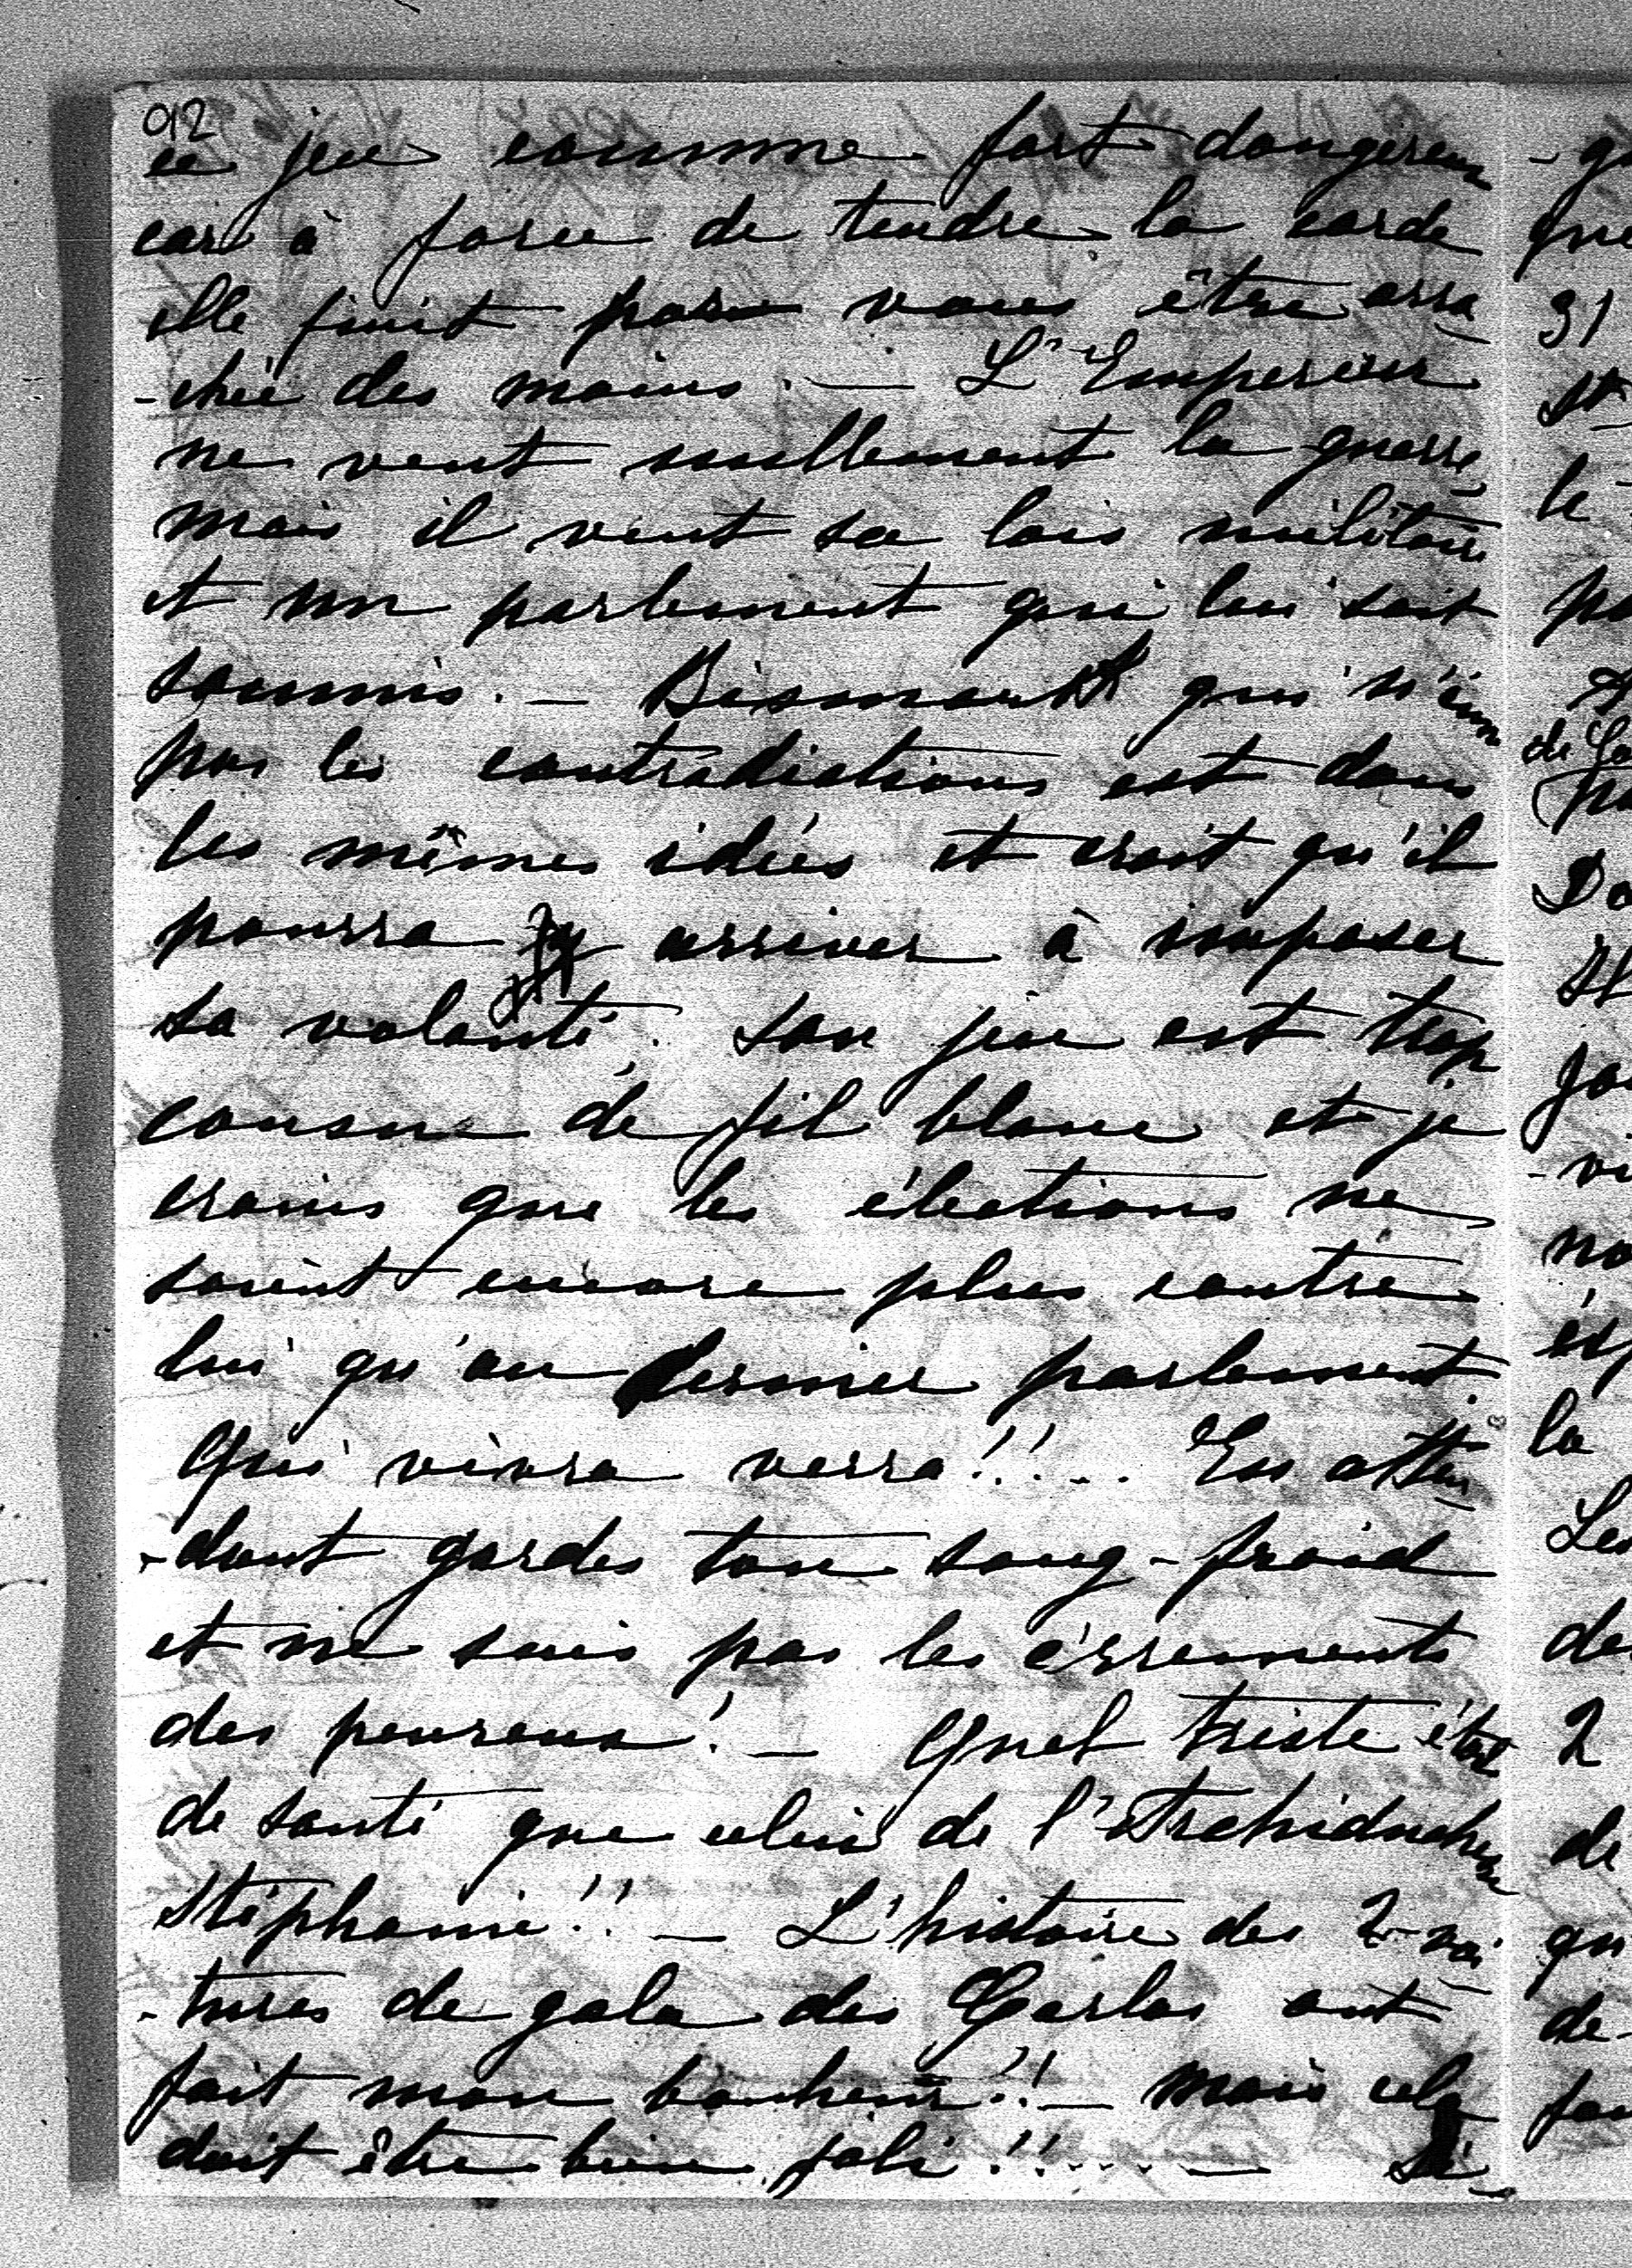 92
ce jeu comme fort dangereux
car à force de tendre la corde
elle finit par vous être arra
-chée des mains. — L'Empereur
ne veut nullement la guerre,
mais il veut sa lois militaire
et un parlement qui lui soit
soumis. — Bismarkk qui n'aime
pas les contradictions est dans
les mêmes idées et croit qu'il
pourra arriver à imposer
sa volonté. Son jeu est trop
cousu de fil blanc et je
crains que les élections ne
soient encore plus contre
lui qu'au dernier parlement.
Qui vivra verra!!... En atten
-dant gardes ton sang-froid
et ne suis pas les érrements
des peureux! — Quel triste état
de santé que celui de l'Archiduchesse
Stéphanie!! — L'histoire des 2 voi
-tures de gala des Carlos ont
fait mon bonheur!! — Mais cela
doit être bien joli!!..... — Si